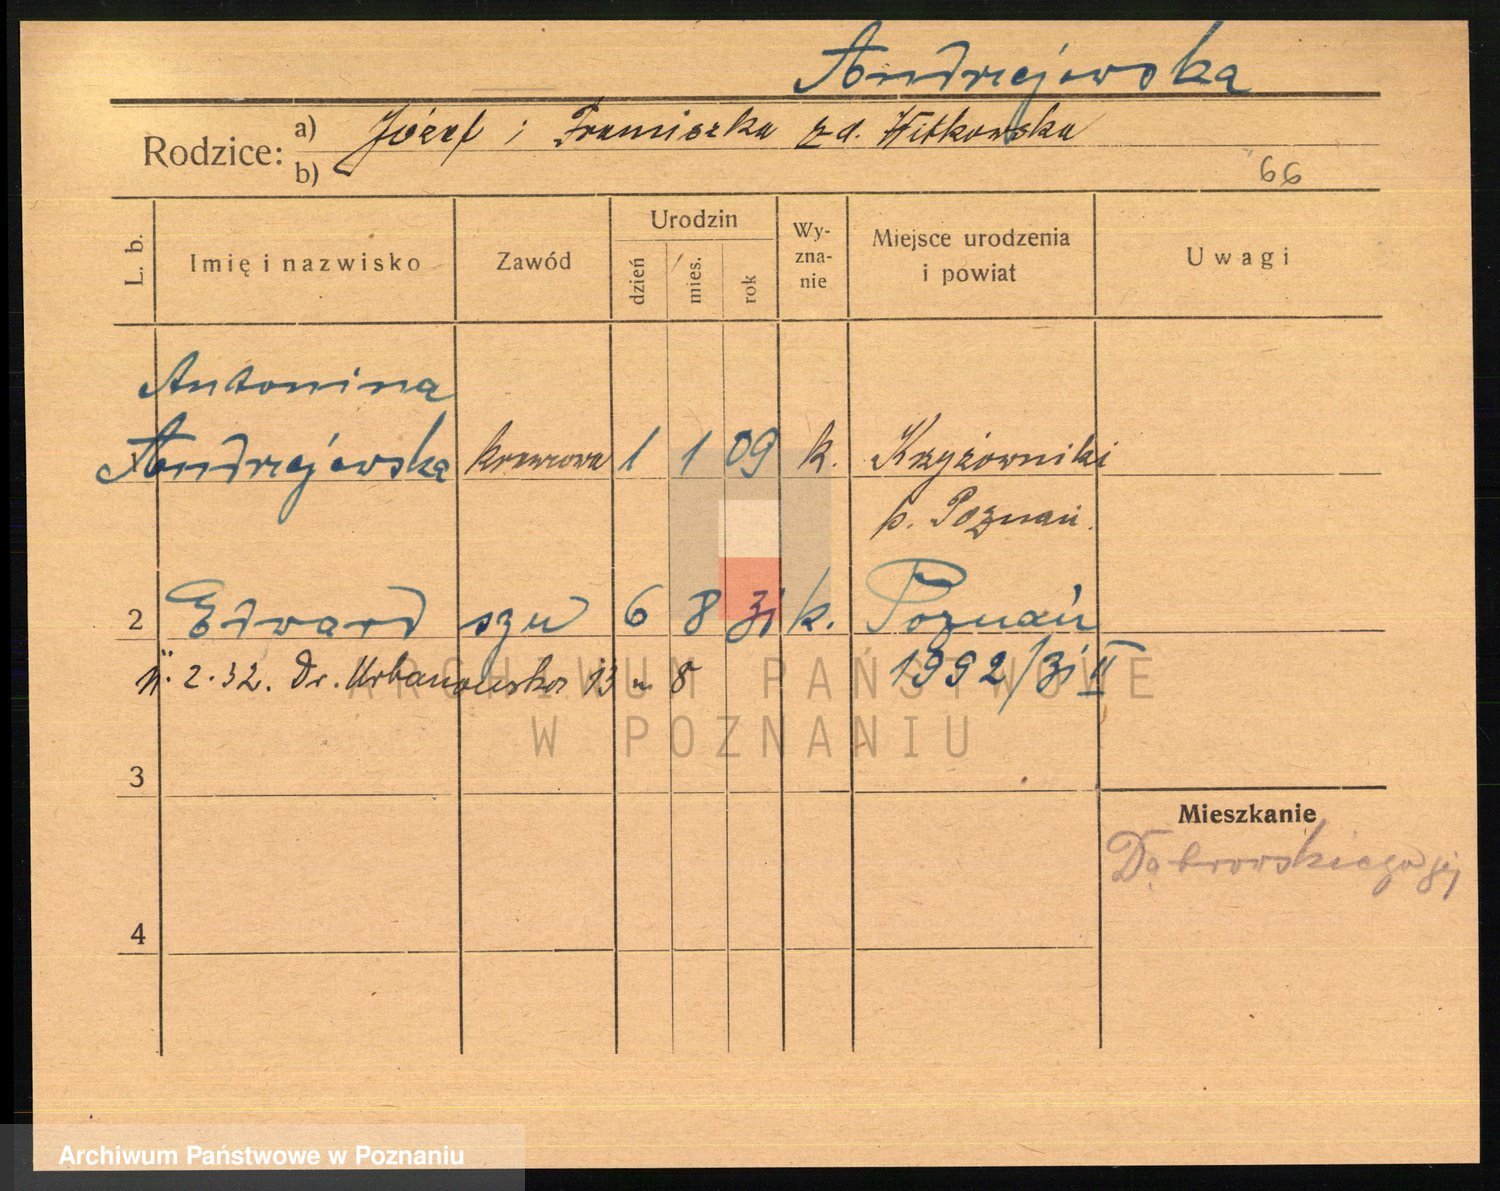 Andrzejewska
Rodzice: a) Józef i Franciszka z d. Witkowska
b)
66
L. b.
Imię i nazwisko
Zawód
Urodzin
dzień
mies.
rok
Wy-
zna-
nie
Miejsce urodzenia
i powiat
Uwagi
Antonina
Andrzejewska krawcowa 1 1 09 k. Krzyżowniki
p. Poznań.
2 Edward syn 6 8 31 k. Poznań
2.32. Dr. Urbanowska 13 m 8 1992/31 II
3
Mieszkanie
Dąbrowskiego
4
ARCHIWUM PAŃSTWOWE
W POZNANIU
Archiwum Państwowe w Poznaniu